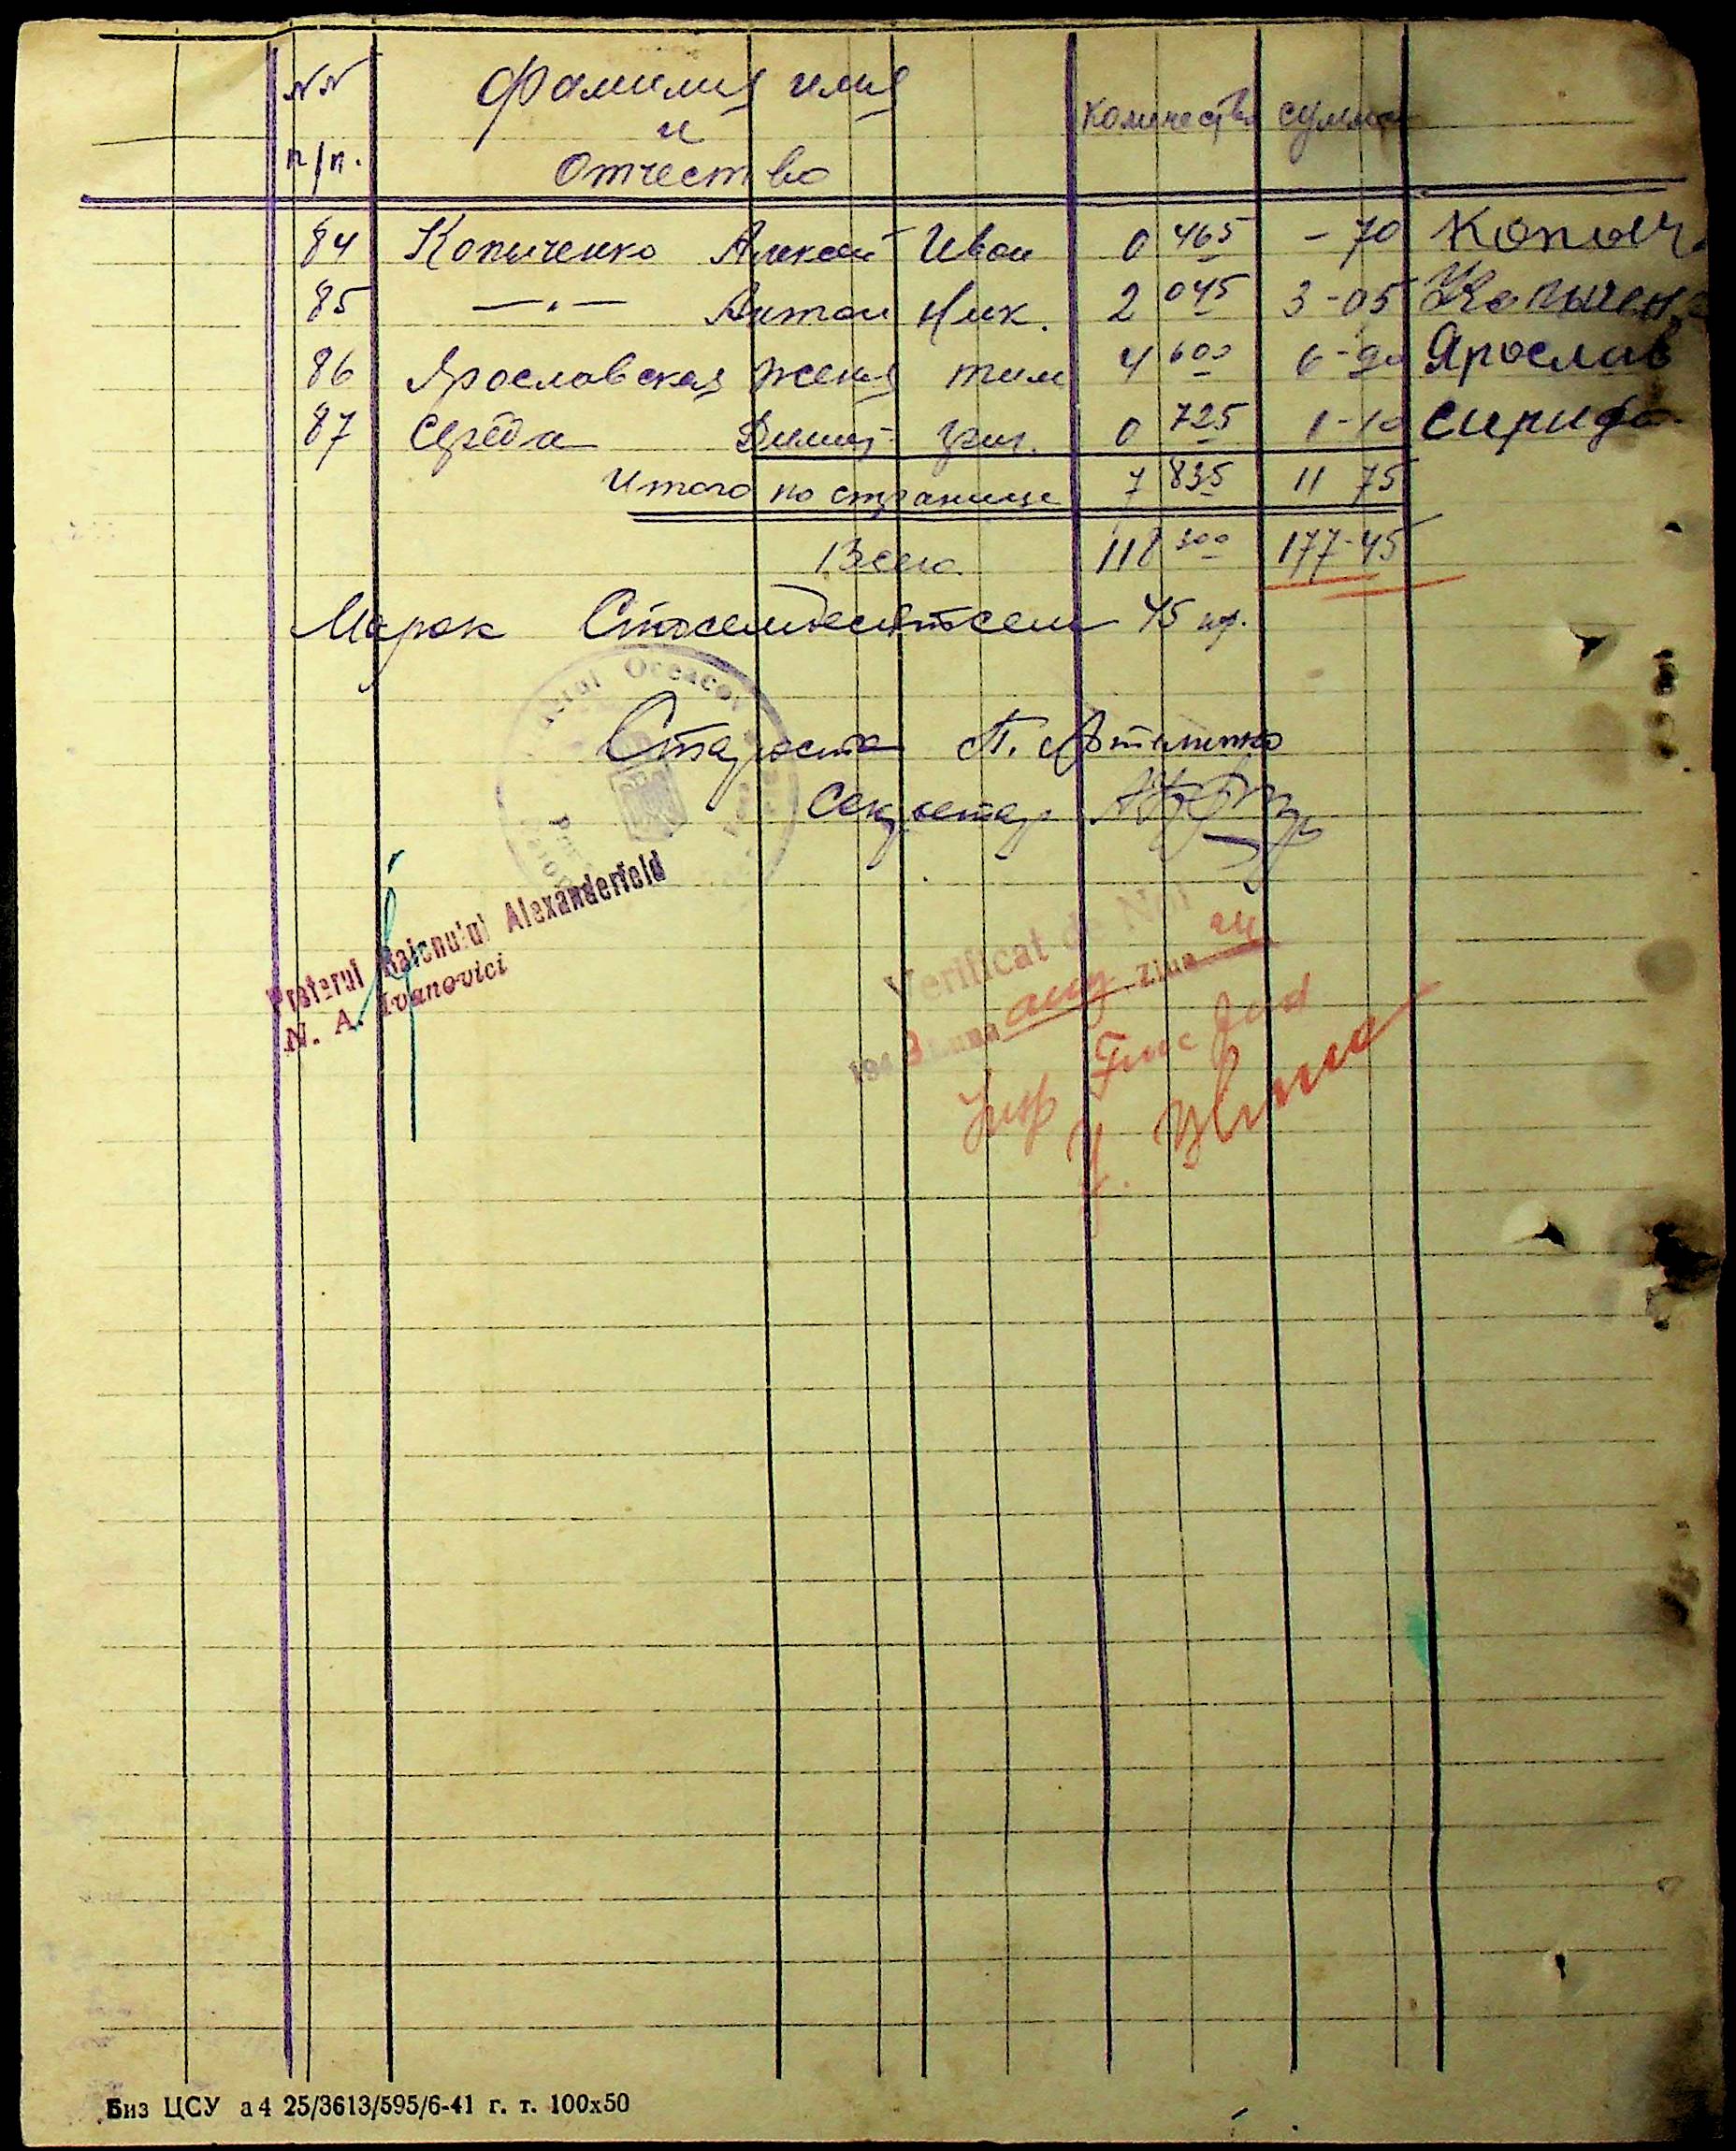 NN Фамилия имя
и
п/п. Отчество количество сумма
84 Копиченко Алексей Иван 0 465 - 70 Копыч
85 —"— Антон Ник. 2 045 3-05 Копычен
86 Ярославская Женя Тим 4 600 6-90 Ярослав
87 Середа Дмит. Григ. 0 725 1-10 Сирида
Итого по странице 7 835 11 75
Всего 118 300 177-45
Марок Стосемдесятсем 45 пф.
Староста П.
Секретар
Pretorul Raionului Alexanderfeld
N. A. Ivanovici
Verificat de Noi
1943 Luna aug Ziua
Insp Finc Jud
Биз ЦСУ а4 25/3613/595/6-41 г. т. 100х50